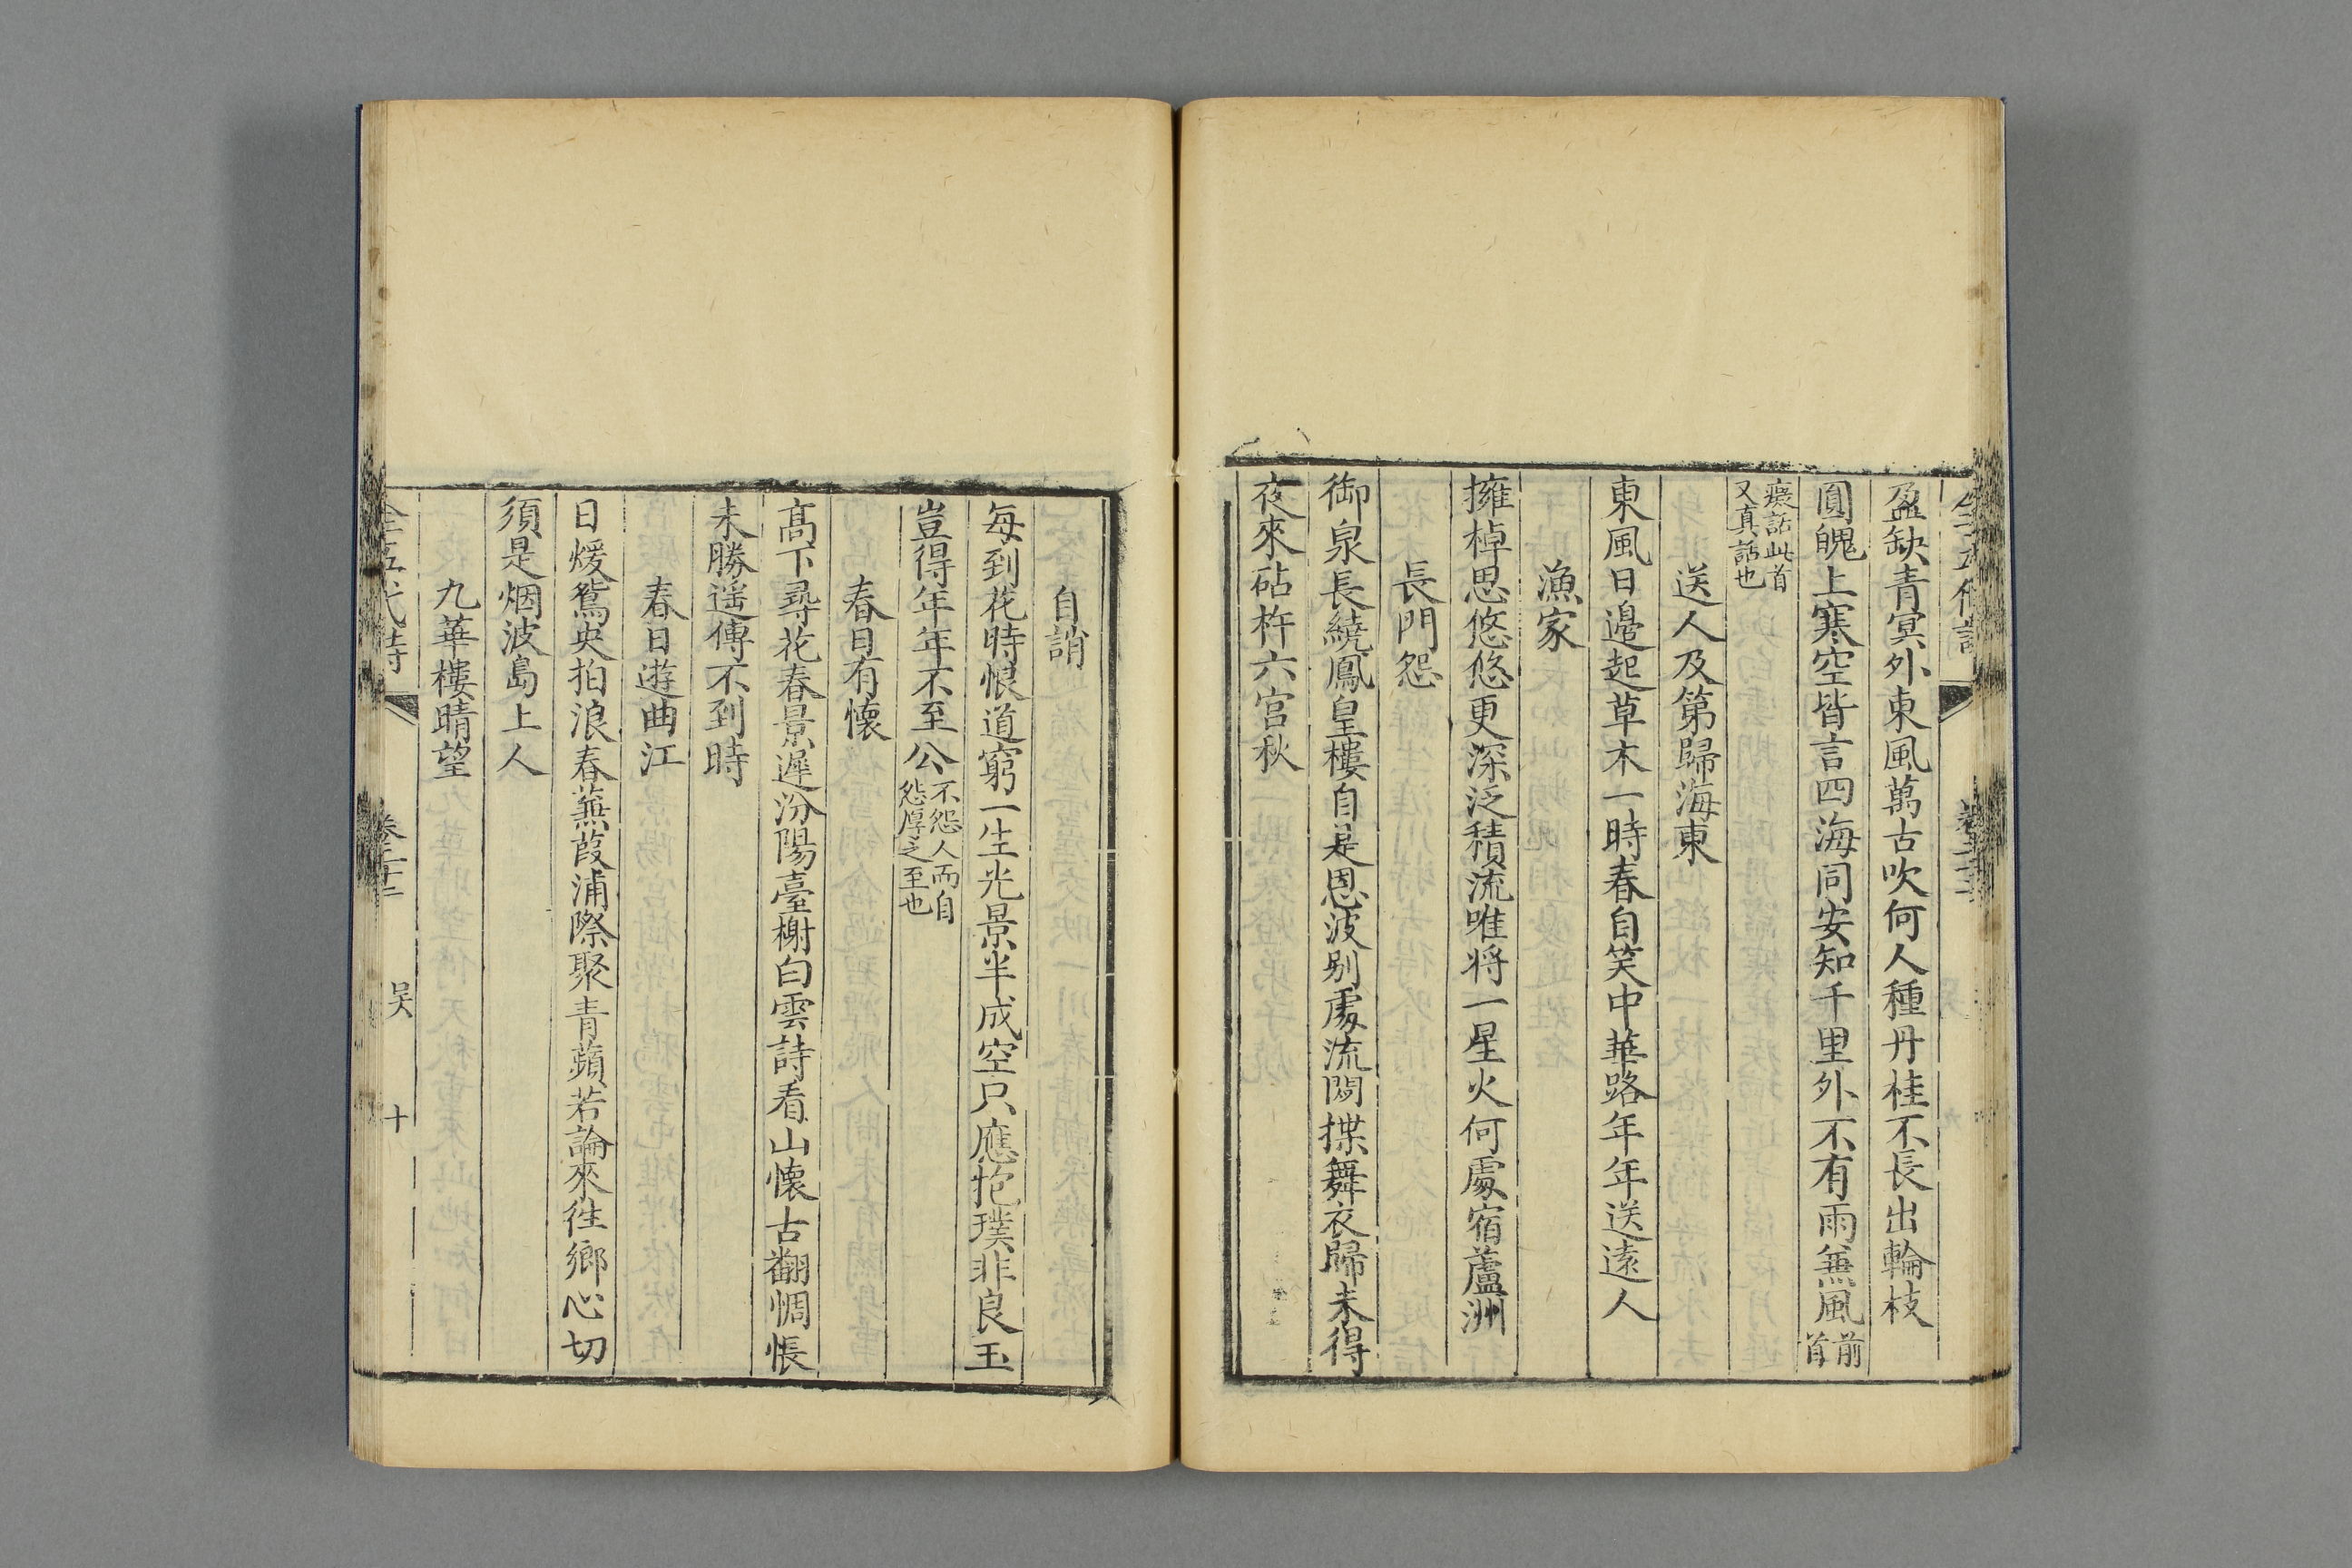 盈缺青冥外東風萬古吹何人種丹桂不長出輪枝
圓魄上寒空皆言四海同安知千里外不有雨兼風前首
癡話此首又真話也
送人及第歸海東
東風日邊起草木一時春自笑中華路年年送遠人
漁家
擁棹思悠悠更深泛積流唯將一星火何處宿蘆洲
長門怨
御泉長繞鳳皇樓自是恩波別處流閑揲舞衣歸未得
夜來砧杵六宮秋
自誚
每到花時恨道窮一生光景半成空只應抱璞非良玉
豈得年年不至公不怨人而自怨厚之至也
春日有懷
高下尋花春景遲汾陽臺榭白雲詩看山懷古翻惆悵
未勝遙傳不到時
春日遊曲江
日煖鴛央拍浪春蕪葭浦際聚青蘋若論來往鄉心切
須是烟波島上人
九華樓晴望
全五代詩
吴
十